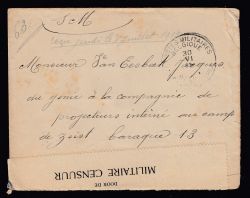 S. M
POSTES MILITAIRES
BELGIQUE
30
VI
Monsieur Van Eeckout Jacques
du génie à la compagnie de
projecteurs interné au camp
de Zeist baraque 13
DOOR DE
MILITAIRE CENSUUR